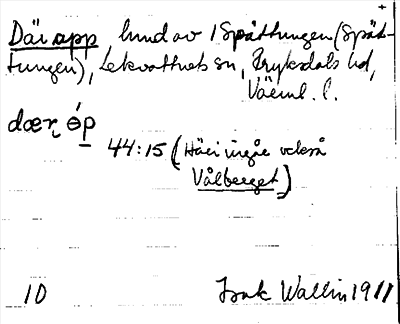 Där app lund av /Spåttungen (Spåt-
tungen), Lekvattnets sn, Fryksdals hd,
Värml. l.
dær, ɵ́p
44:15 (Häri ingår också
Vålberget)
10 Isak Wallin 1911